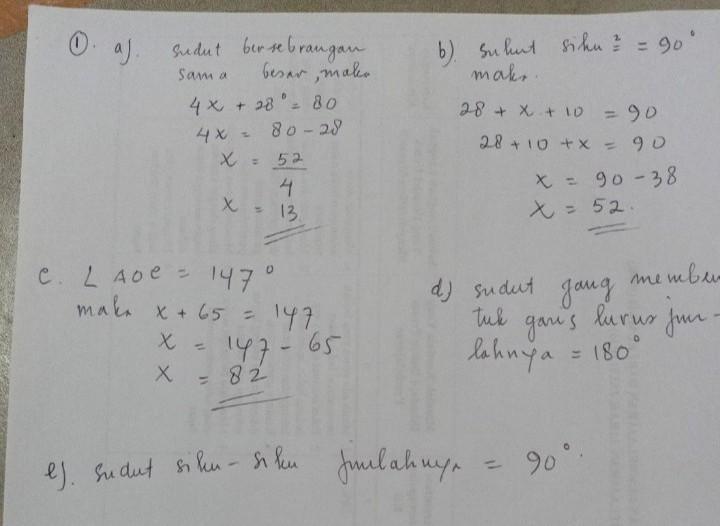 ① a). sudut bersebrangan
sama besar, maka
4x + 28° = 80
4x = 80 - 28
x = 52
4
x = 13
b). suhut siku 2 = 90°
maka.
28 + x + 10 = 90
28 + 10 + x = 90
x = 90 - 38
x = 52.
c. ∠ AOC = 147°
maka x + 65 = 147
x = 147 - 65
x = 82
d) sudut yang memben
tuk garis lurus jum-
lahnya = 180°
e). sudut siku - siku jumlahnya = 90°.